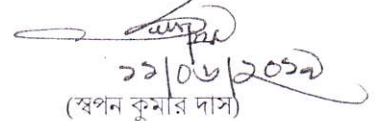 ১১/০৬/২০১৯
(স্বপন কুমার দাস)